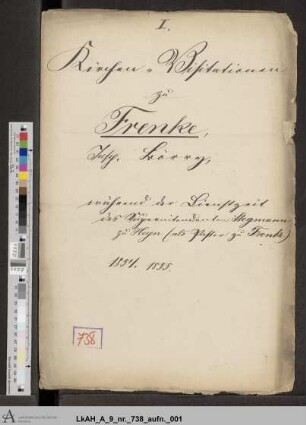 I.
Kirchen-Visitationen
zu
Frenke,
Insp. Börry,
während der Dienstzeit
des Superintendenten Wegmann
zu Heyen (als Pastor zu Frenke)
1854. 1855.
738
LkAH_A_9_nr._738_aufn._001